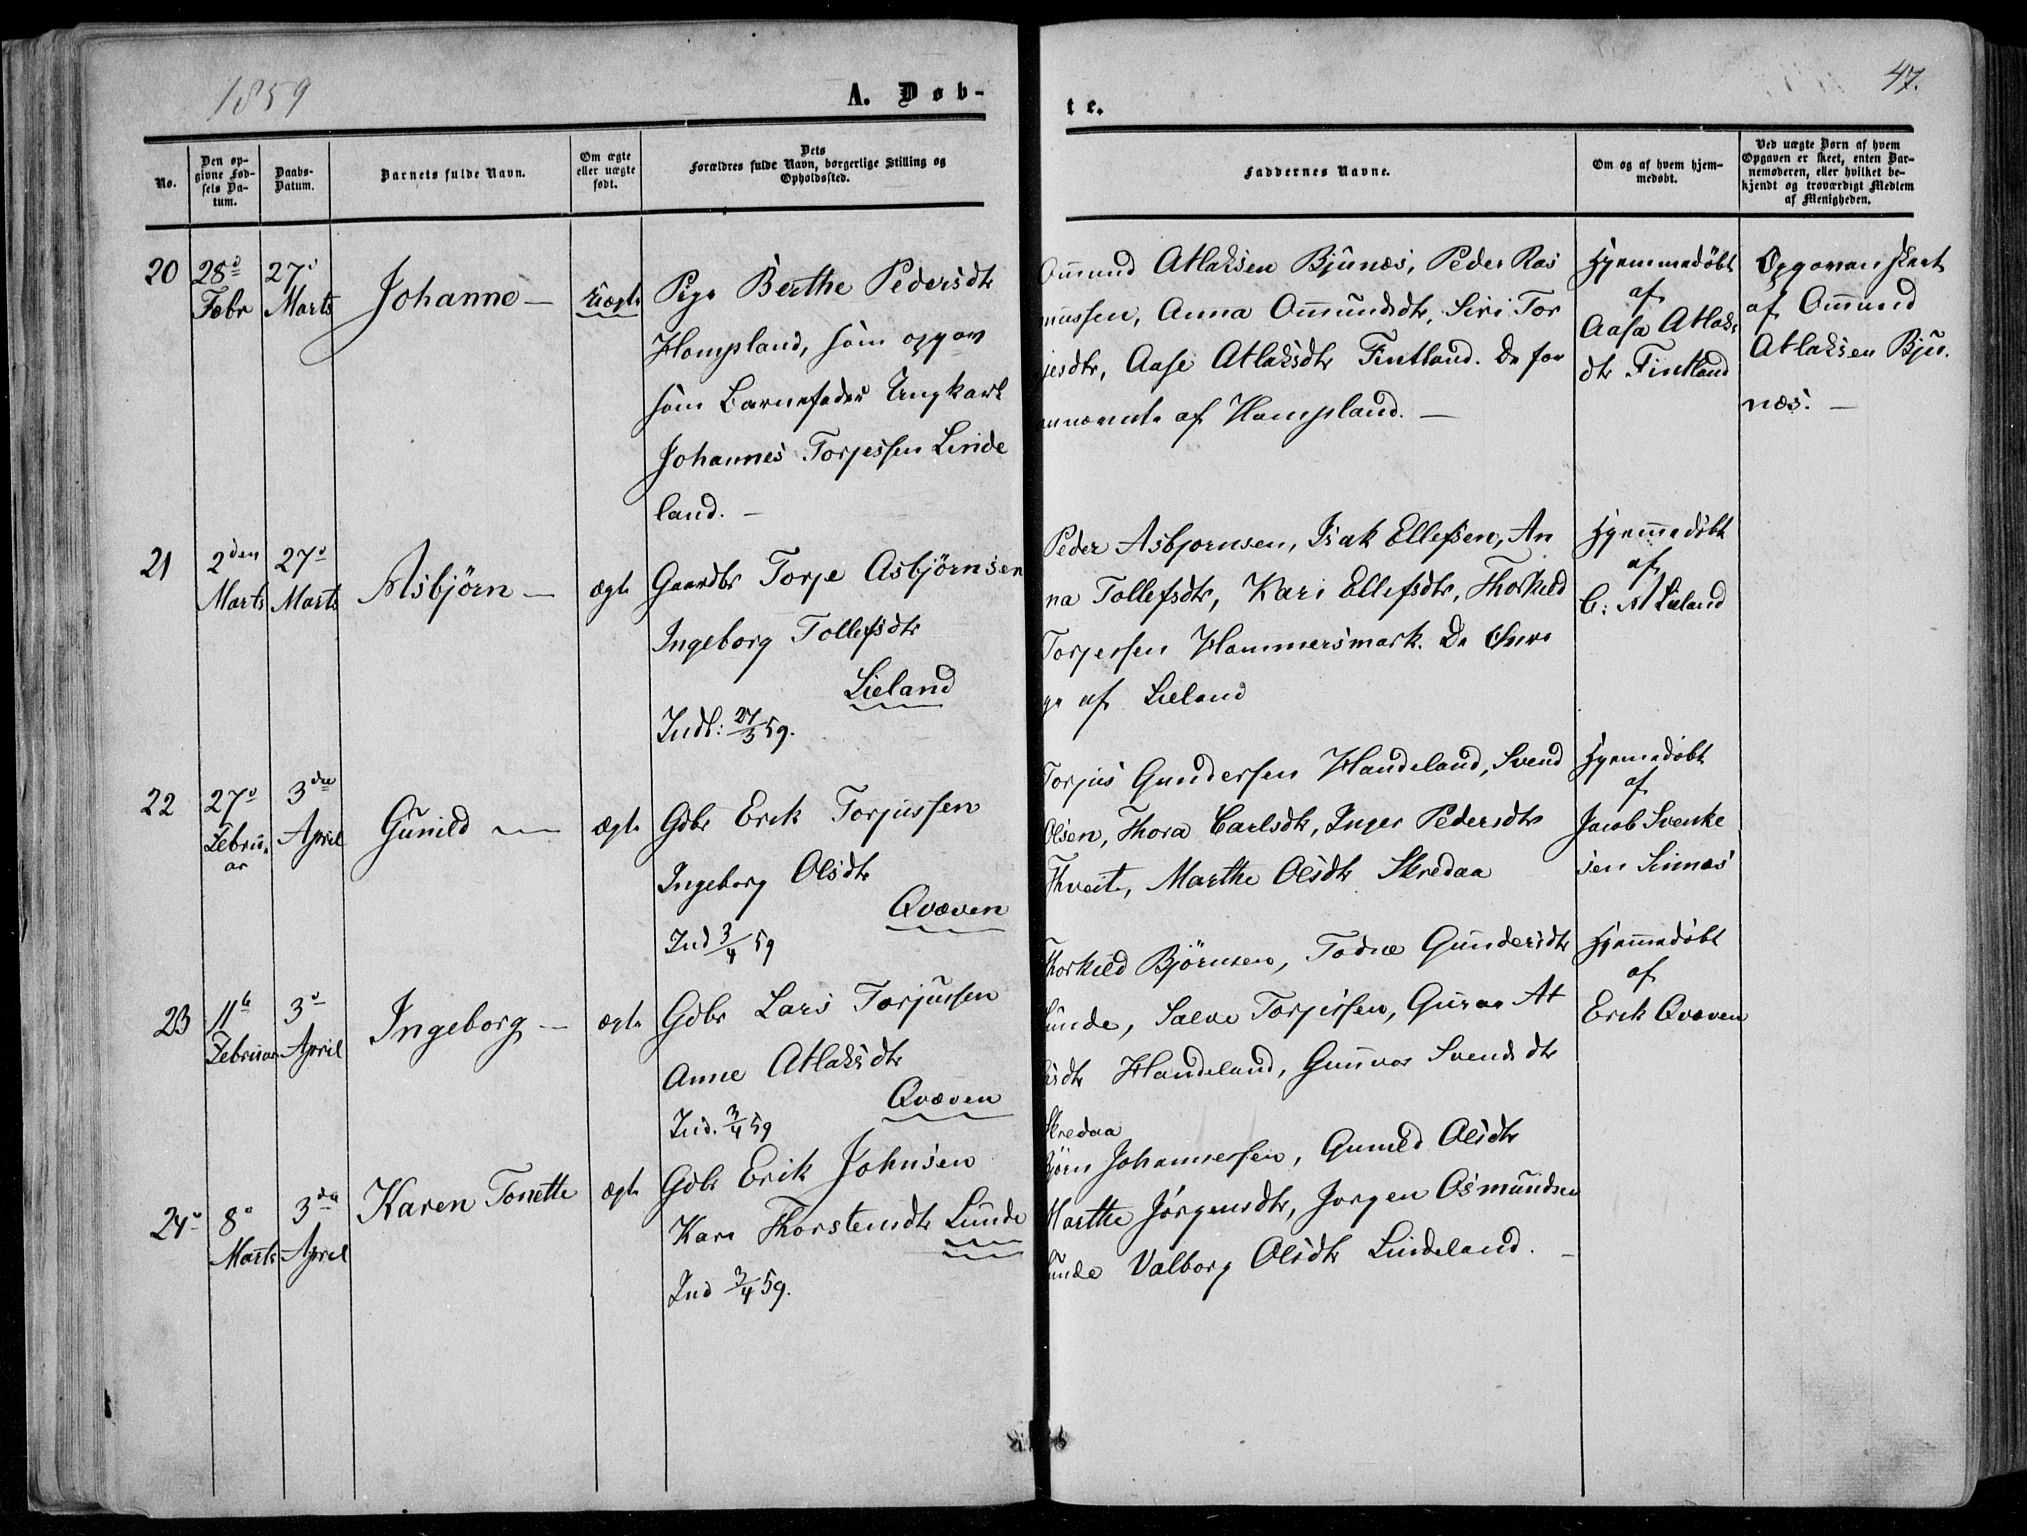 1859
A. Døb-
te.
47.
No.
Den op-
givne Fød-
sels Da-
tum.
Daabs-
Datum.
Barnets fulde Navn.
Om ægte
eller uægte
født.
Dets
Forældres fulde Navn, borgerlige Stilling og
Opholdssted.
Faddernes Navne.
Om og af hvem hjem-
medøbt.
Ved uægte Børn af hvem
Opgaven er skeet, enten Bar-
nemoderen, eller hvilket be-
kjendt og troværdigt Medlem
af Menigheden.
20
28d
Febr
27d
Marts
Johanne —
Uægte
Pige Berthe Pedersdtr
Hompland, som opgav
som Barnefader Ungkarl
Johannes Torjessen Linde
land. —
Omund Atlaksen Bjunæs, Peder Ras
mussen, Anna Omundsdtr, Siri Tor
jesdtr, Aase Atlaksdtr Fintland. De for
unævnte af Hompland. —
Hjemmedøbt
af
Aasa Atlaks
dtr Fintland
Opgaven skeet
af Omund
Atlaksen Bju
næs. —
21
2den
Marts
27d
Marts
Asbjörn —
ægte
Gaardbr Torje Asbjörnsen
Ingeborg Tollefsdtr
Lieland
Indl: 27/3 59.
Peder Asbjornsen, Isak Ellefsen, An
na Tollefsdtr, Kari Ellefsdtr, Thorkild
Torjessen Hammersmark. De Øvri
ge af Lieland
Hjemmedøbt
af
C: A Lieland
22
27d
Februar
ar
3die
April
Gunild —
ægte
Gdbr Erik Torjussen
Ingeborg Olsdtr
Qvæven
Ind 3/4 59
Torjus Gundersen Handeland, Svend
Olsen, Thora Carlsdtr, Inger Pedersdtr
Thveit, Marthe Olsdtr Skredaa
Hjemmedøbt
af
Jacob Svenke
sen Sinnes
23
11te
Februar
3d
April
Ingeborg —
ægte
Gdbr Lars Torjussen
Anne Atlaksdtr
Qvæven
Ind. 3/4 59
Thorkild Björnsen, Todne Gundersdtr
Lunde, Salve Torjussen, Guroe At
laksdtr Handeland, Gunvor Svendsdtr
Skredaa
Hjemmedøbt
af
Erik Qvæven
24
8d
Marts
3die
April
Karen Tonette
ægte
Gdbr Erik Johnsen
Kari Thorstensdtr Lunde
Ind 3/4 59.
Björn Johannessen, Gunild Olsdtr
Marthe Jörgensdtr, Jorgen Osmundsen
Lunde Valborg Olsdtr Lindeland. —